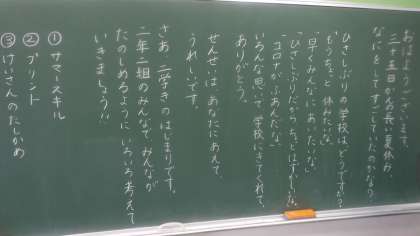 おはようございます。
三十五日かんの長い夏休み、
なにをしてすごしていたのかな？
ひさしぶりの学校はどうですか？
「もうちょっと休みたいな。」
「早くみんなにあいたいな。」
「ひさしぶりだからちょっとはずかしいな。」
「コロナがふあんだな。」
いろんな思いで学校にきてくれて、
ありがとう。
せんせいは、あなたにあえて、
うれしいです。
さあ 二学きのはじまりです。
二年二組のみんなで、みんなが
たのしめるようにいろいろ考えて
いきましょう!!
① サマースキル
② プリント
③ けいさんのたしかめ